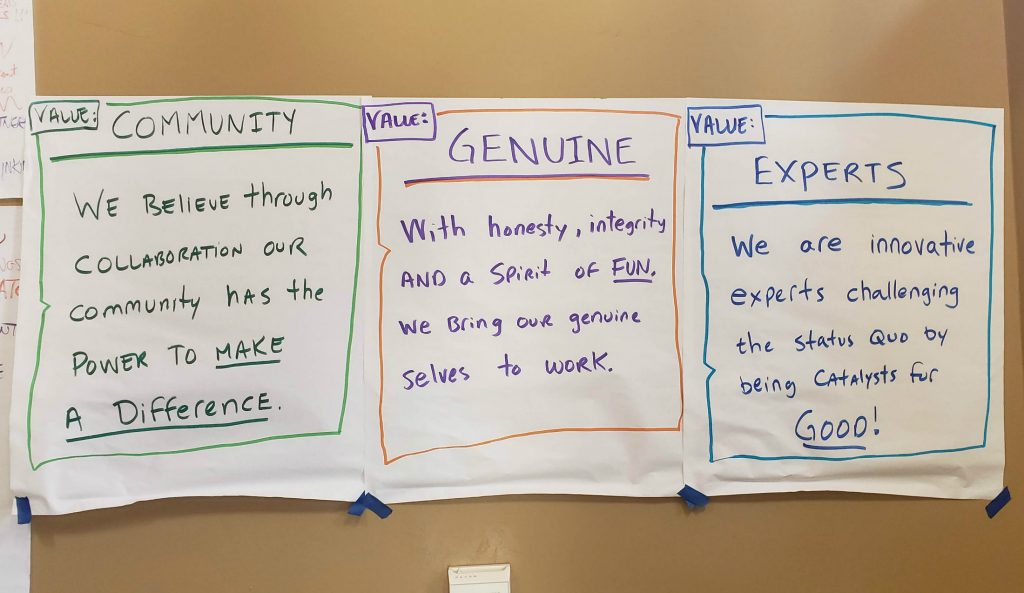 VALUE: COMMUNITY
WE BELIEVE through
COLLABORATION OUR
community has the
POWER TO MAKE
A DiffERENCE.
VALUE:
GENUINE
With honesty, integrity
AND a SPiRit of FUN.
we BRing OUR genuine
selves to WORK.
VALUE:
EXPERTS
We are innovative
experts challenging
the status Quo by
being CATALYSTS for
GOOD!